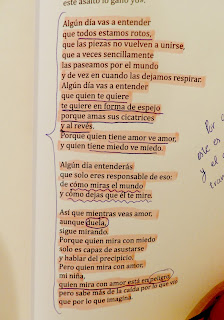 este asalto lo gano yo».
Algún día vas a entender
que todos estamos rotos,
que las piezas no vuelven a unirse,
que a veces sencillamente
las paseamos por el mundo
y de vez en cuando las dejamos respirar.
Algún día vas a entender
que quien te quiere
te quiere en forma de espejo
porque amas sus cicatrices
y al revés.
Porque quien tiene amor ve amor,
y quien tiene miedo ve miedo.
Algún día entenderás
que solo eres responsable de eso:
de cómo miras el mundo
y cómo dejas que él te mire.
Así que mientras veas amor,
aunque duela,
sigue mirando.
Porque quien mira con miedo
solo es capaz de asustarse
y hablar del precipicio.
Pero quien mira con amor,
mi niña,
quien mira con amor está en peligro,
pero sabe más de la caída por lo que vive
que por lo que imagina.
este es
y el